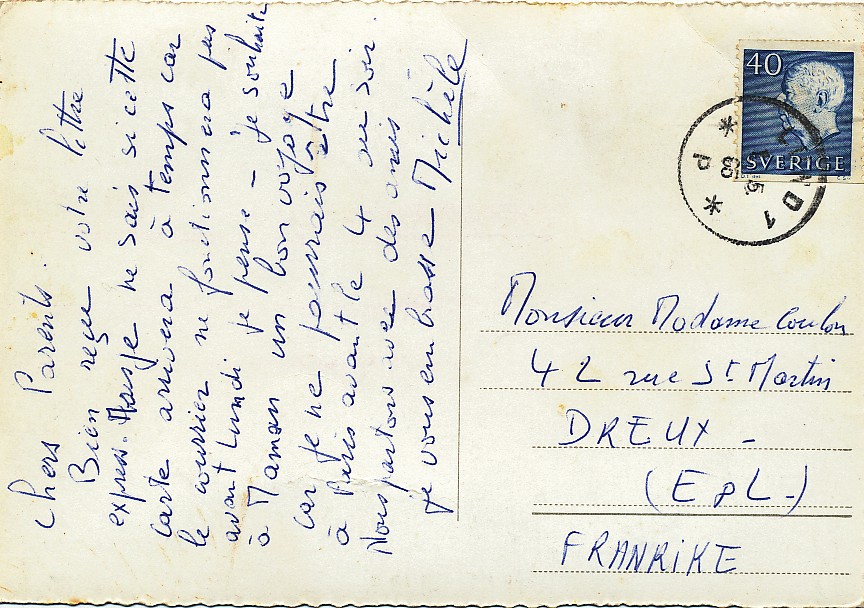 Chers Parents.
Bien reçu votre lettre
express. Mais je ne sais si cette
carte arrivera à temps car
le courrier ne fonctionnera pas
avant lundi je pense - je souhaite
à Maman un bon voyage
car je ne pourrais être
à Paris avant le 4 au soir.
Nous partons avec des amis
je vous embrasse Michèle
40
SVERIGE
LUND 1
* P *
Monsieur Madame Coulon
42 rue St Martin
DREUX -
(E&L-)
FRANRIKE